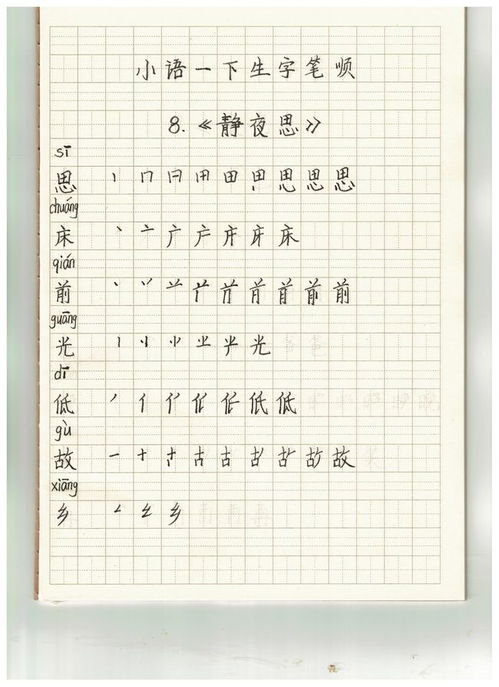 小语一下生字笔顺
8.《静夜思》
sī
思 丨 冂 日 田 田 思 思 思 思
chuáng
床 丶 亠 广 庐 床 床 床
qián
前 丶 丷 䒑 前 前 前 前 前 前
guāng
光 丨 丨丶 ⺌ 业 光 光
dī
低 丿 亻 亻 低 低 低 低
gù
故 一 十 十 古 古 故 故 故 故
xiāng
乡 𠃋 幺 乡